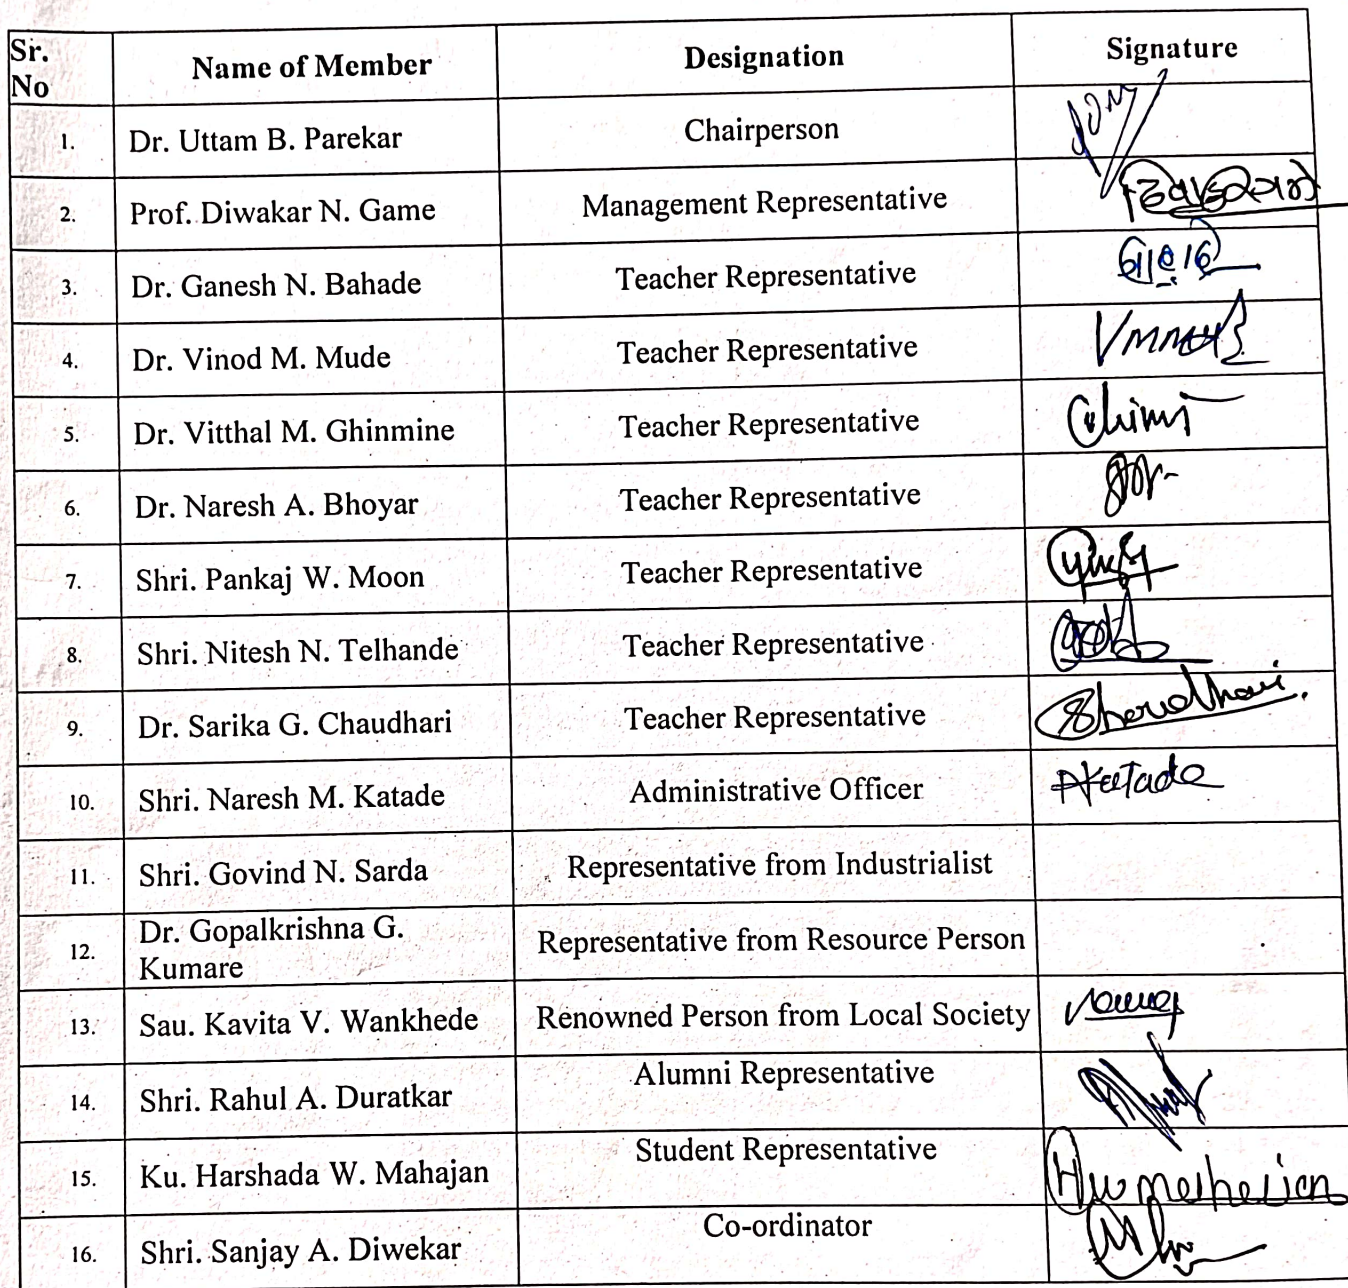 Sr. No Name of Member Designation Signature
1. Dr. Uttam B. Parekar Chairperson
2. Prof. Diwakar N. Game Management Representative
3. Dr. Ganesh N. Bahade Teacher Representative
4. Dr. Vinod M. Mude Teacher Representative
5. Dr. Vitthal M. Ghinmine Teacher Representative
6. Dr. Naresh A. Bhoyar Teacher Representative
7. Shri. Pankaj W. Moon Teacher Representative
8. Shri. Nitesh N. Telhande Teacher Representative
9. Dr. Sarika G. Chaudhari Teacher Representative
10. Shri. Naresh M. Katade Administrative Officer
11. Shri. Govind N. Sarda Representative from Industrialist
12. Dr. Gopalkrishna G.
Kumare Representative from Resource Person
13. Sau. Kavita V. Wankhede Renowned Person from Local Society
14. Shri. Rahul A. Duratkar Alumni Representative
15. Ku. Harshada W. Mahajan Student Representative
16. Shri. Sanjay A. Diwekar Co-ordinator